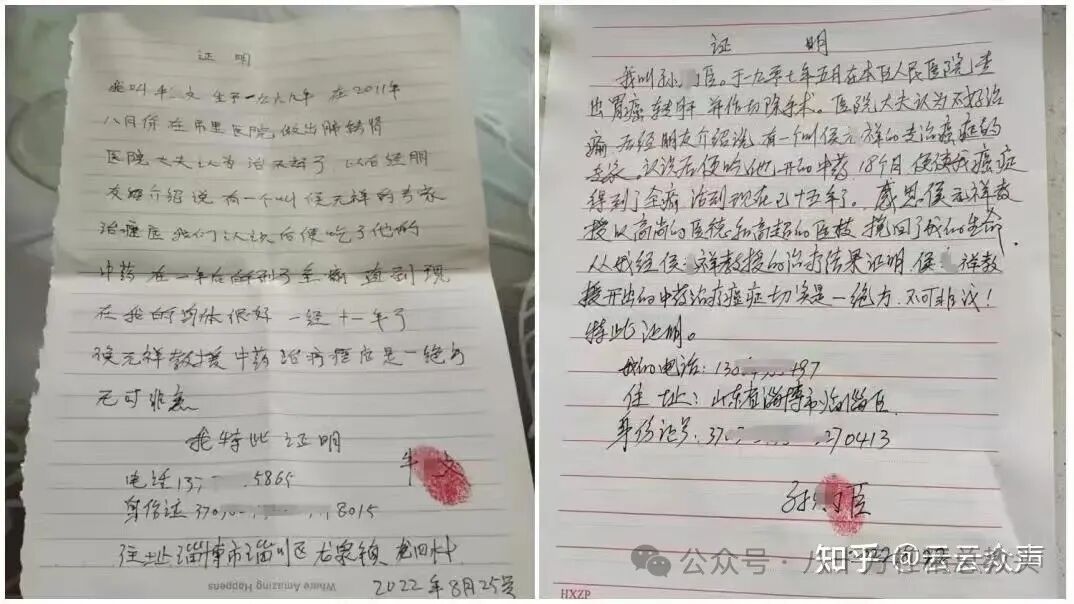 证 明
我叫牛 文 生于一九六九年 在2011年
八月份 在 市里医院 做出肺转肾
医院大夫认为 治不好了 以后经朋
友 介绍说 有一个叫侯元祥的专家
治癌症 我们认识后便吃了他的
中药 在一年后得到了全癒 直到现
在我的身体很好 一经十一年了
侯元祥教授中药治病癌症是一绝方
无可非
我特此证明
电话137 5865
身份证370 8015
住址淄博市淄川区龙泉镇 龙四村
牛 文
Where Amazing Happens
2022年8月25号
证 明
我叫孙 臣。于一九 七年五月在本区人民医院,查
出胃癌转肝 并作切除手术。医院大夫认为不好治
癒 后经朋友介绍说,有一个叫侯元祥的专治癌症的
专家,认识后便吃他开的中药18个月 便使我癌症
得到了全癒 活到现在已十五年了。感恩侯元祥教
授以高尚的医德和高超的医技,挽回了我的生命,
从我经侯 祥教授的治疗结果证明,侯 祥教
授开出的中药治疗癌症切实是一绝方,不可非议!
特此证明。
我的电话:130 487
住 址:山东省淄博市临淄区.
身份证号:37 270413
孙 臣
HXZP
公众号·八
知乎 @云云众声